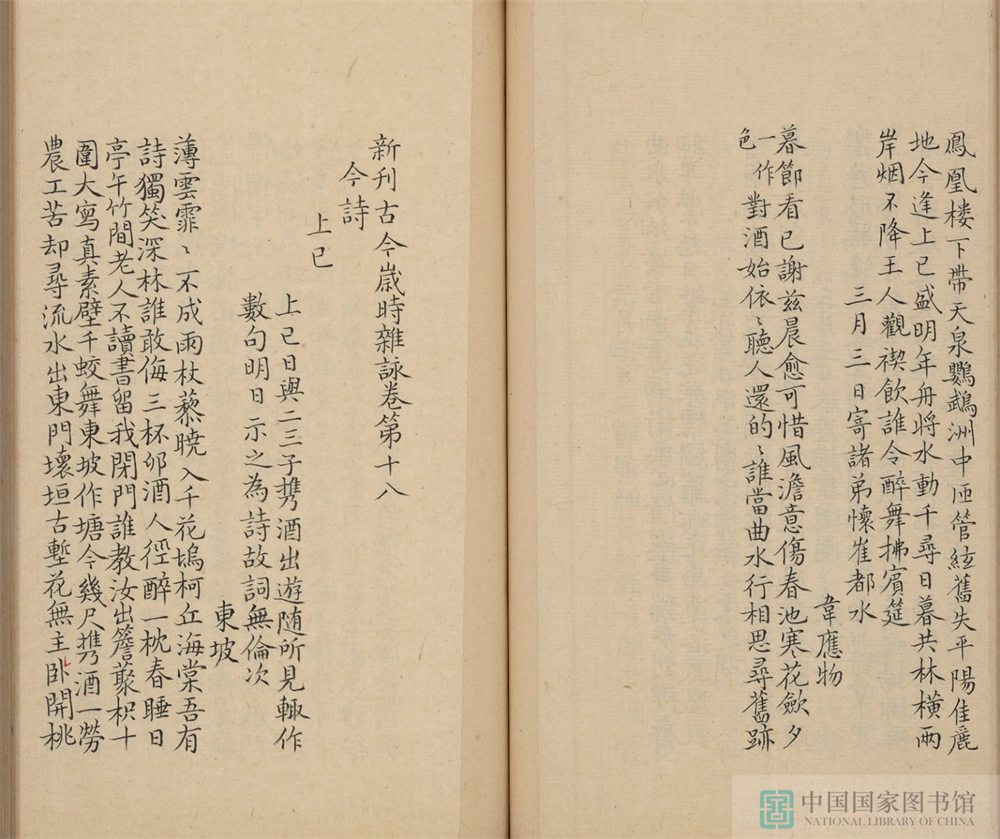 鳳凰楼下帶天泉鸚鵡洲中匝管絃舊失平陽佳麗
地今逢上巳盛明年舟將水動千尋日暮共林橫兩
岸烟不降王人觀禊飲誰令醉舞拂賓筵
三月三日寄諸弟懷崔都水
韋應物
暮節看已謝兹晨愈可惜風澹意傷春池寒花歛夕
一作
色
對酒始依〻聽人還的〻誰當曲水行相思尋舊跡
新刊古今歲時雜詠卷第十八
今詩
上巳
上巳日與二三子携酒出遊随所見輙作
數句明日示之為詩故詞無倫次
東坡
薄雲霏〻不成雨杖藜曉入千花塢柯丘海棠吾有
詩獨笑深林誰敢侮三杯卯酒人徑醉一枕春睡日
亭午竹間老人不讀書留我閉門誰教汝出簷藂枳十
圍大寫真素壁千蛟舞東坡作塘今幾尺携酒一勞
農工苦却尋流水出東門壞垣古塹花無主卧開桃
中国国家图书馆
NATIONAL LIBRARY OF CHINA